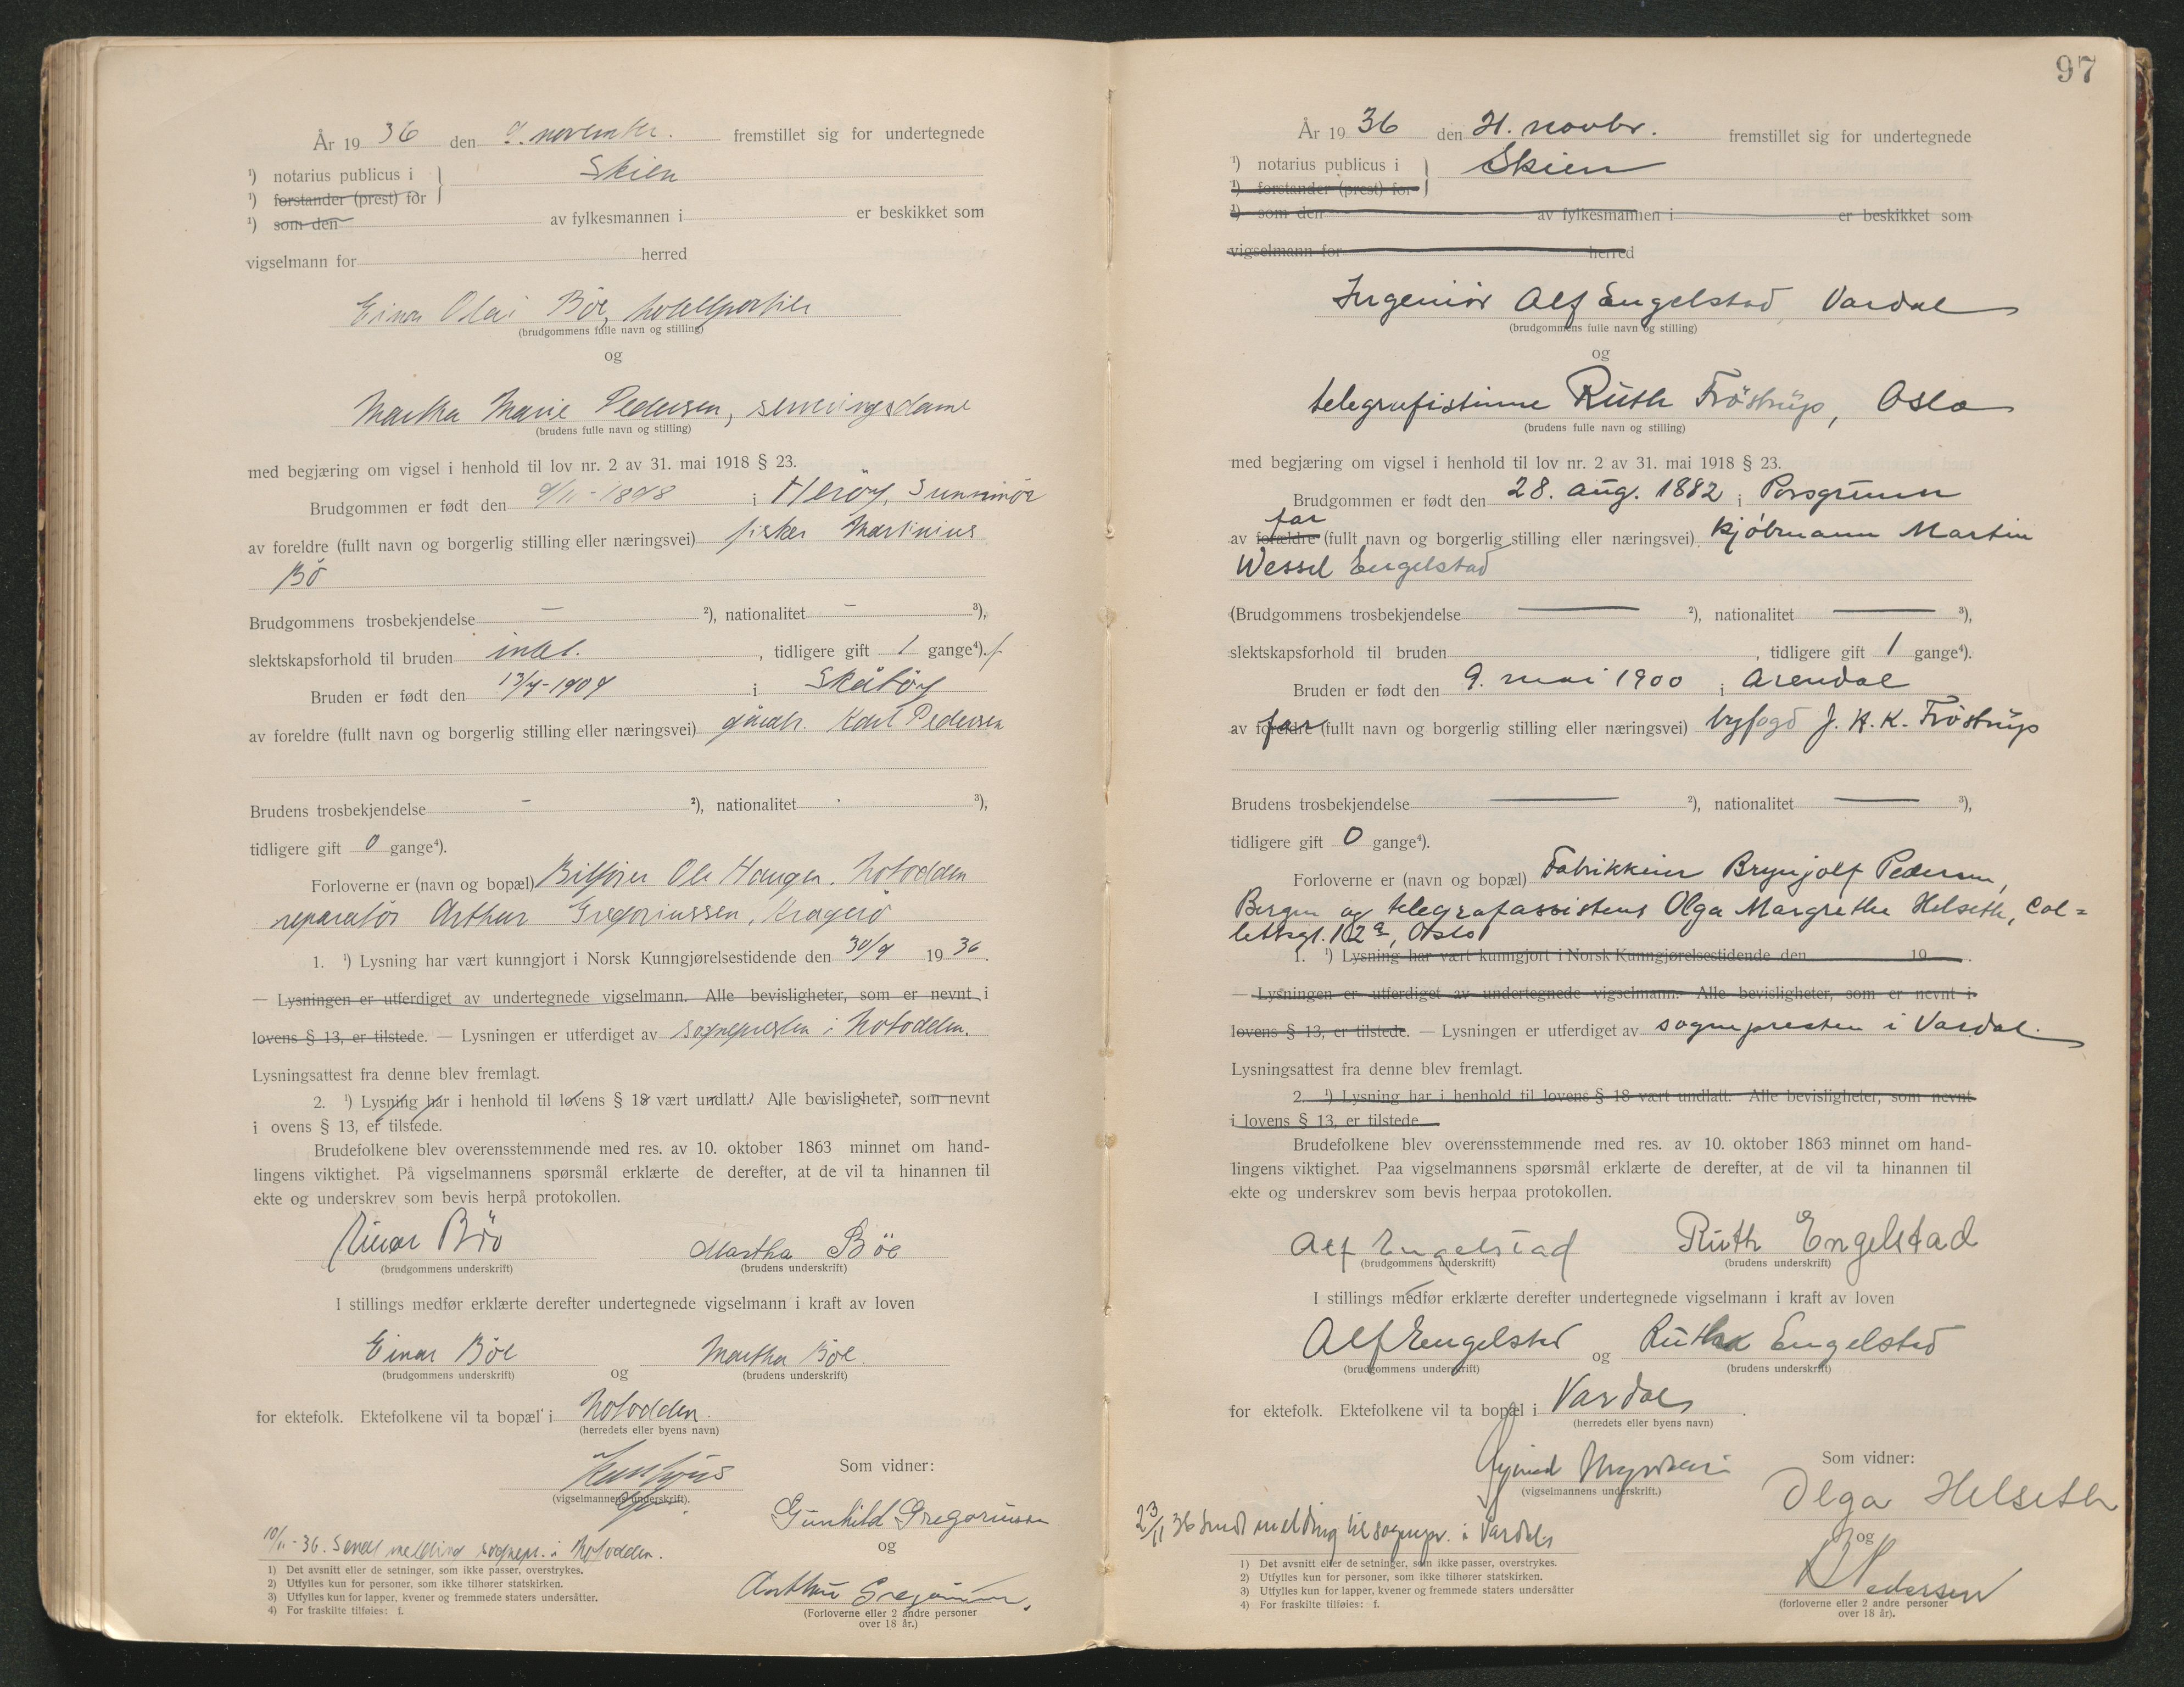 År 19 36 den 9. november. fremstillet sig for undertegnede
¹) notarius publicus i } Skien
¹) forstander (prest) for
¹) som den av fylkesmannen i er beskikket som
vigselmann for herred
Einar Olai Böe, hotellportier
(brudgommens fulle navn og stilling)
og
Martha Marie Pedersen, serveringsdame
(brudens fulle navn og stilling)
med begjæring om vigsel i henhold til lov nr. 2 av 31. mai 1918 § 23.
Brudgommen er født den 9/11-1898 i Heröy, Sunnmöre
av foreldre (fullt navn og borgerlig stilling eller næringsvei) fisker Martinius
Bö
Brudgommens trosbekjendelse — ²), nationalitet — ³),
slektskapsforhold til bruden intet. , tidligere gift 1 gange⁴). f.
Bruden er født den 13/7-1904 i Skåtöy
av foreldre (fullt navn og borgerlig stilling eller næringsvei) gårdbr. Karl Pedersen
Brudens trosbekjendelse - ²), nationalitet - ³),
tidligere gift 0 gange⁴).
Forloverne er (navn og bopæl) Bilfører Ole Haugen, Notodden
reparatör Arthur Gregoriussen, Kragerö
1. ¹) Lysning har vært kunngjort i Norsk Kunngjørelsestidende den 30/9 19 36.
— Lysningen er utferdiget av undertegnede vigselmann. Alle bevisligheter, som er nevnt i
lovens § 13, er tilstede. — Lysningen er utferdiget av sognepresten i Notodden.
Lysningsattest fra denne blev fremlagt.
2. ¹) Lysning har i henhold til lovens § 18 vært undlatt. Alle bevisligheter, som nevnt
i ovens § 13, er tilstede.
Brudefolkene blev overensstemmende med res. av 10. oktober 1863 minnet om hand-
lingens viktighet. På vigselmannens spørsmål erklærte de derefter, at de vil ta hinannen til
ekte og underskrev som bevis herpå protokollen.
Einar Böe Martha Böe
(brudgommens underskrift) (brudens underskrift)
I stillings medfør erklærte derefter undertegnede vigselmann i kraft av loven
Einar Böe og Martha Böe
(brudgommens underskrift) (brudens underskrift)
for ektefolk. Ektefolkene vil ta bopæl i Notodden.
(herredets eller byens navn)
Som vidner:
(vigselmannens underskrift).
Gunhild Gregoriussen
og
10/11-36. Sendt melding sognepr. i Notodden.
Arthur Gregoriussen.
(Forloverne eller 2 andre personer
over 18 år.)
1) Det avsnitt eller de setninger, som ikke passer, overstrykes.
2) Utfylles kun for personer, som ikke tilhører statskirken.
3) Utfylles kun for lapper, kvener og fremmede staters undersåtter.
4) For fraskilte tilføies: f.
97
År 19 36 den 21. novbr. fremstillet sig for undertegnede
¹) notarius publicus i } Skien
¹) forstander (prest) for
¹) som den av fylkesmannen i er beskikket som
vigselmann for herred
Ingeniör Alf Engelstad, Vardal
(brudgommens fulle navn og stilling)
og
telegrafistinne Ruth Fröstrup, Oslo
(brudens fulle navn og stilling)
med begjæring om vigsel i henhold til lov nr. 2 av 31. mai 1918 § 23.
Brudgommen er født den 28. aug. 1882 i Porsgrunn
far
av forældre (fullt navn og borgerlig stilling eller næringsvei) kjöbmann Martin
Wessel Engelstad
(Brudgommens trosbekjendelse — ²), nationalitet — ³),
slektskapsforhold til bruden , tidligere gift 1 gange⁴).
Bruden er født den 9. mai 1900 i Arendal
av foreldre far (fullt navn og borgerlig stilling eller næringsvei) byfogd J. K. K. Fröstrup
Brudens trosbekjendelse — ²), nationalitet — ³),
tidligere gift 0 gange⁴).
Forloverne er (navn og bopæl) Fabrikkeier Brynjolf Pedersen,
Bergen og telegrafassistent Olga Margrethe Helseth, Col=
lettsgt. 102ª, Oslo
1. ¹) Lysning har vært kunngjort i Norsk Kunngjørelsestidende den 19 .
— Lysningen er utferdiget av undertegnede vigselmann. Alle bevisligheter, som er nevnt i
lovens § 13, er tilstede. — Lysningen er utferdiget av sognepresten i Vardal.
Lysningsattest fra denne blev fremlagt.
2. ¹) Lysning har i henhold til lovens § 18 vært undlatt. Alle bevisligheter, som nevnt
i lovens § 13, er tilstede
Brudefolkene blev overensstemmende med res. av 10. oktober 1863 minnet om hand-
lingens viktighet. Paa vigselmannens spørsmål erklærte de derefter, at de vil ta hinannen til
ekte og underskrev som bevis herpaa protokollen.
Alf Engelstad Ruth Engelstad
(brudgommens underskrift) (brudens underskrift)
I stillings medfør erklærte derefter undertegnede vigselmann i kraft av loven
Alf Engelstad og Ruth Engelstad
(brudgommens underskrift) (brudens underskrift)
for ektefolk. Ektefolkene vil ta bopæl i Vardal .
(herredets eller byens navn)
Som vidner:
(vigselmannens underskrift.)
Olga Helseth
og
23/11 36 Sendt melding til sognepr. i Vardal
B Pedersen
(forloverne eller 2 andre personer
over 18 år).
1) Det avsnitt eller de setninger, som ikke passer, overstrykes.
2) Utfylles kun for personer, som ikke tilhører statskirken.
3) Utfylles kun for lapper, kvener og fremmede staters undersåtter
4) For fraskilte tilføies: f.